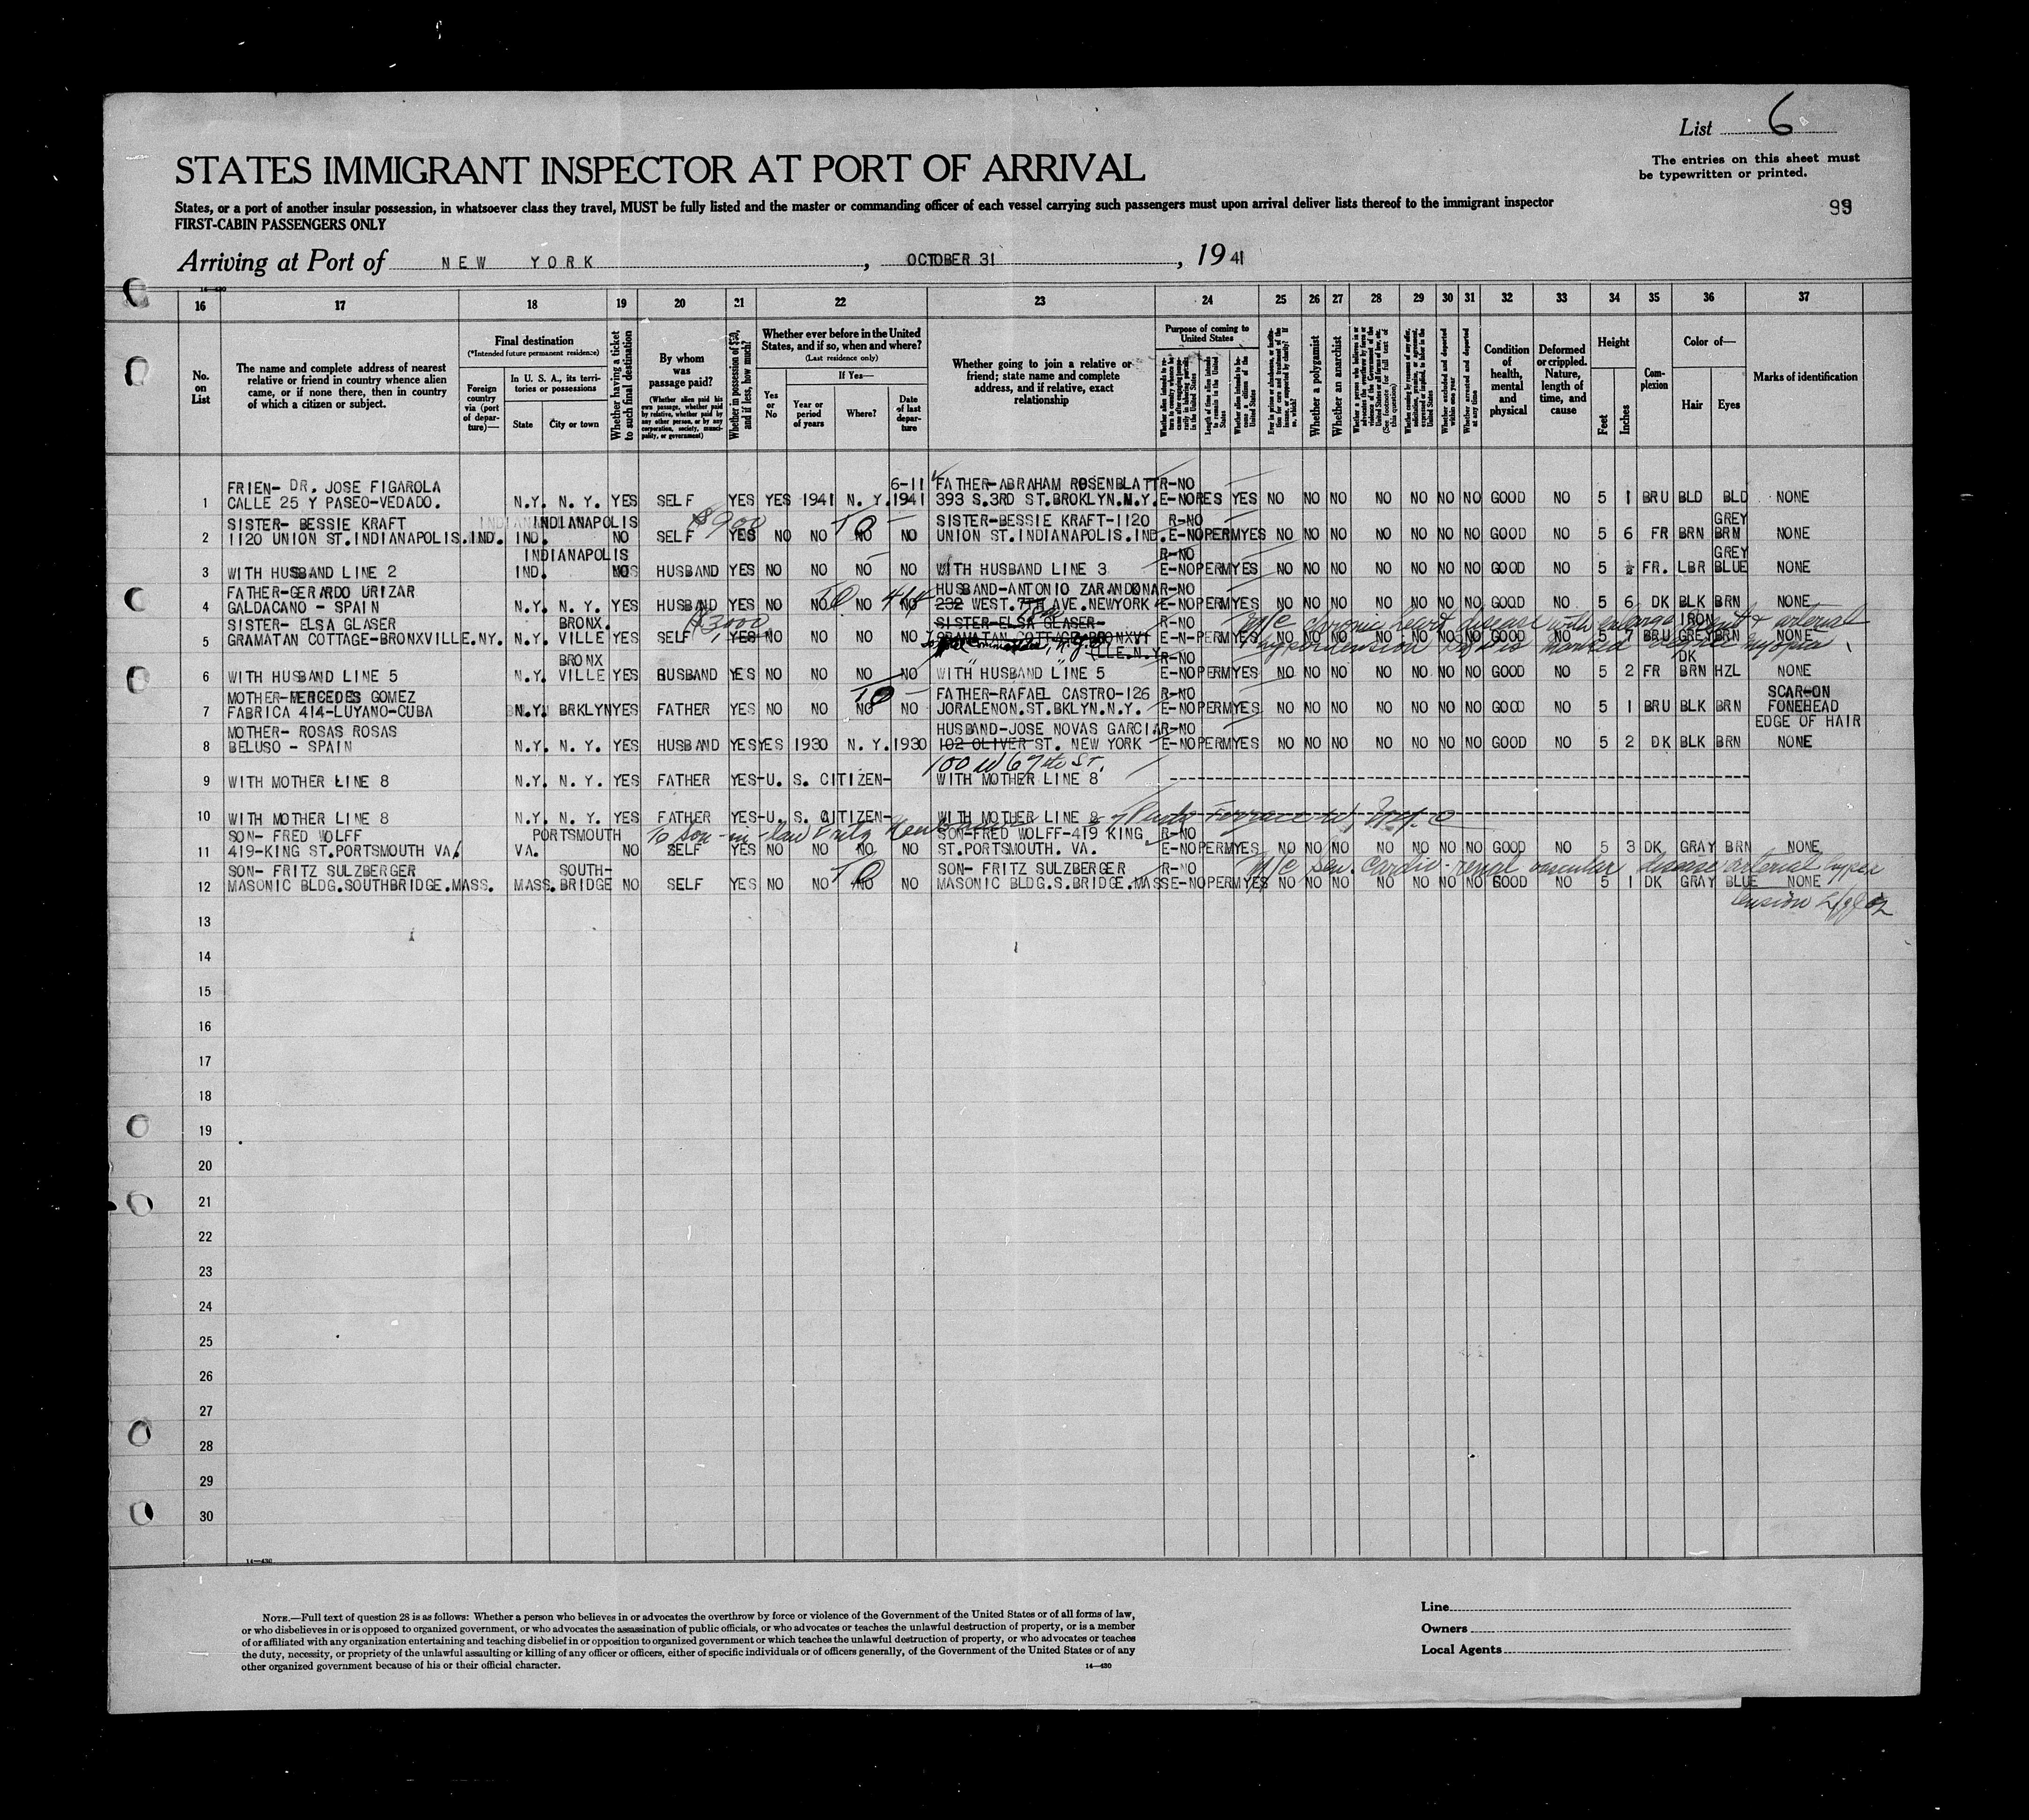 List 6
STATES IMMIGRANT INSPECTOR AT PORT OF ARRIVAL
The entries on this sheet must
be typewritten or printed.
States, or a port of another insular possession, in whatsoever class they travel, MUST be fully listed and the master or commanding officer of each vessel carrying such passengers must upon arrival deliver lists thereof to the immigrant inspector
FIRST-CABIN PASSENGERS ONLY
Arriving at Port of NEW YORK, OCTOBER 31, 1941
16 17 18 19 20 21 22 23 24 25 26 27 28 29 30 31 32 33 34 35 36 37
No. on List
The name and complete address of nearest relative or friend in country whence alien came, or if none there, then in country of which a citizen or subject.
Final destination
(*Intended future permanent residence)
Foreign country via (port of departure)—
In U. S. A., its territories or possessions
State
City or town
Whether having a ticket to such final destination
By whom was passage paid?
(Whether alien paid his own passage, whether paid by relative, whether paid by any other person, or by any corporation, society, municipality, or government)
Whether in possession of $50, and if less, how much?
Whether ever before in the United States, and if so, when and where?
(Last residence only)
Yes or No
If Yes—
Year or period of years
Where?
Date of last departure
Whether going to join a relative or friend; state name and complete address, and if relative, exact relationship
Purpose of coming to United States
Whether a polygamist
Whether an anarchist
Condition of health, mental and physical
Deformed or crippled. Nature, length of time, and cause
Height
Feet
Inches
Complexion
Color of—
Hair
Eyes
Marks of identification
FRIEN- DR. JOSE FIGAROLA 6-11 FATHER-ABRAHAM ROSENBLATT R-NO
1 CALLE 25 Y PASEO-VEDADO. N.Y. N. Y. YES SELF YES YES 1941 N. Y. 1941 393 S.3RD ST.BROKLYN.N.Y. E-NO RES YES NO NO NO NO NO NO NO GOOD NO 5 1 BRU BLD BLD NONE
SISTER- BESSIE KRAFT INDIANAPOLIS $900 TO SISTER-BESSIE KRAFT-1120 R-NO GREY
2 1120 UNION ST.INDIANAPOLIS.IND. IND. NO SELF YES NO NO NO NO UNION ST.INDIANAPOLIS.IND. E-NO PERM YES NO NO NO NO NO NO NO GOOD NO 5 6 FR BRN BRN NONE
INDIANAPOLIS R-NO GREY
3 WITH HUSBAND LINE 2 IND. NO HUSBAND YES NO NO NO NO WITH HUSBAND LINE 3 E-NO PERM YES NO NO NO NO NO NO NO GOOD NO 5 FR. LBR BLUE NONE
FATHER-GERARDO URIZAR HUSBAND-ANTONIO ZARANDONA R-NO
4 GALDACANO - SPAIN N.Y. N. Y. YES HUSBAND YES NO NO NO NO 232 WEST. 7TH AVE.NEWYORK E-NO PERM YES NO NO NO NO NO NO NO GOOD NO 5 6 DK BLK BRN NONE
SISTER- ELSA GLASER BRONX. $3000 SISTER-ELSA GLASER- R-NO m/c chronic heart disease with arterial IRON
5 GRAMATAN COTTAGE-BRONXVILLE.NY. N.Y. VILLE YES SELF YES NO NO NO NO GRAMATAN COTTAGE-BRONXVI E-N- PERM YES NO NO NO NO NO NO NO GOOD NO 5 7 BRU GREY BRN NONE
hypertension marked myopia
LLE.N.Y
BRONX R-NO DK
6 WITH HUSBAND LINE 5 N.Y. VILLE YES HUSBAND YES NO NO NO NO WITH HUSBAND LINE 5 E-NO PERM YES NO NO NO NO NO NO NO GOOD NO 5 2 FR BRN HZL NONE
MOTHER-MERCEDES GOMEZ TO FATHER-RAFAEL CASTRO-126 R-NO SCAR-ON
7 FABRICA 414-LUYANO-CUBA N.Y. BRKLYN YES FATHER YES NO NO NO NO JORALENON.ST.BKLYN.N.Y. E-NO PERM YES NO NO NO NO NO NO NO GOOD NO 5 1 BRU BLK BRN FONEHEAD
EDGE OF HAIR
MOTHER- ROSAS ROSAS HUSBAND-JOSE NOVAS GARCIA R-NO
8 BELUSO - SPAIN N.Y. N. Y. YES HUSBAND YES YES 1930 N. Y. 1930 102 OLIVER ST. NEW YORK E-NO PERM YES NO NO NO NO NO NO NO GOOD NO 5 2 DK BLK BRN NONE
100 W 67th ST.
9 WITH MOTHER LINE 8 N.Y. N. Y. YES FATHER YES-U. S. CITIZEN- WITH MOTHER LINE 8
10 WITH MOTHER LINE 8 N.Y. N. Y. YES FATHER YES-U. S. CITIZEN- WITH MOTHER LINE 8
SON- FRED WOLFF PORTSMOUTH To son-in-law Fritz SON-FRED WOLFF-419 KING R-NO
11 419-KING ST.PORTSMOUTH VA. VA. NO SELF YES NO NO NO NO ST.PORTSMOUTH. VA. E-NO PERM YES NO NO NO NO NO NO NO GOOD NO 5 3 DK GRAY BRN NONE
SON- FRITZ SULZBERGER SOUTH- TO SON- FRITZ SULZBERGER R-NO m/c Sen. cardio-renal vascular disease arterial hyper
12 MASONIC BLDG.SOUTHBRIDGE.MASS. MASS. BRIDGE NO SELF YES NO NO NO NO MASONIC BLDG.S.BRIDGE.MASS E-NO PERM YES NO NO NO NO NO NO NO GOOD NO 5 1 DK GRAY BLUE NONE
tension
13
14
15
16
17
18
19
20
21
22
23
24
25
26
27
28
29
30
14—430
NOTE.—Full text of question 28 is as follows: Whether a person who believes in or advocates the overthrow by force or violence of the Government of the United States or of all forms of law,
or who disbelieves in or is opposed to organized government, or who advocates the assassination of public officials, or who advocates or teaches the unlawful destruction of property, or is a member
of or affiliated with any organization entertaining and teaching disbelief in or opposition to organized government or which teaches the unlawful destruction of property, or who advocates or teaches
the duty, necessity, or propriety of the unlawful assaulting or killing of any officer or officers, either of specific individuals or of officers generally, of the Government of the United States or of any
other organized government because of his or their official character.
14—430
Line
Owners
Local Agents